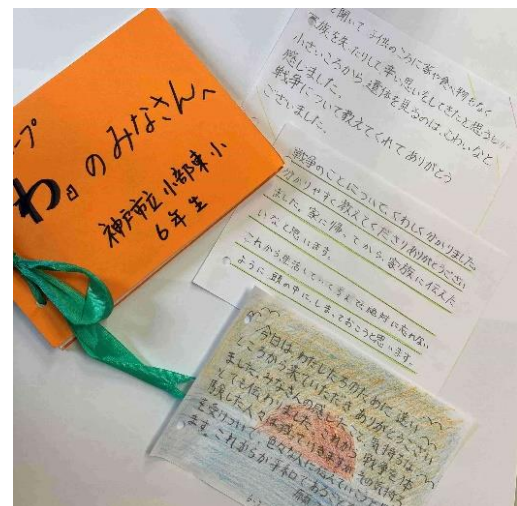 プ
わ』のみなさんへ
神戸市立小部東小
6年生
と聞いて子供のころに家や食べ物もなく
家族を失ったりして辛い思いをしてきたと思うし
小さいころから遺体を見るのは、こわいなと
感じました。
戦争について教えてくれてありがとう
ございました。
戦争のことについて、くわしく分かりました。
分かりやすく教えてくださりありがとうござい
ました。家に帰ってから、家族に伝えた
いなと思います。
これから生活していく
絶対に忘れない
ように頭の中にしまっておこうと思います。
今日はわたしたちのために遠い
ところから来ていただきありがとうござい
ました。みなさんの
気持ちは
とても伝わりました。これから戦争を体
験した人々は減って
その気持ち
を受けついで色々な人に伝えていこうと
ます。これからが平和であること